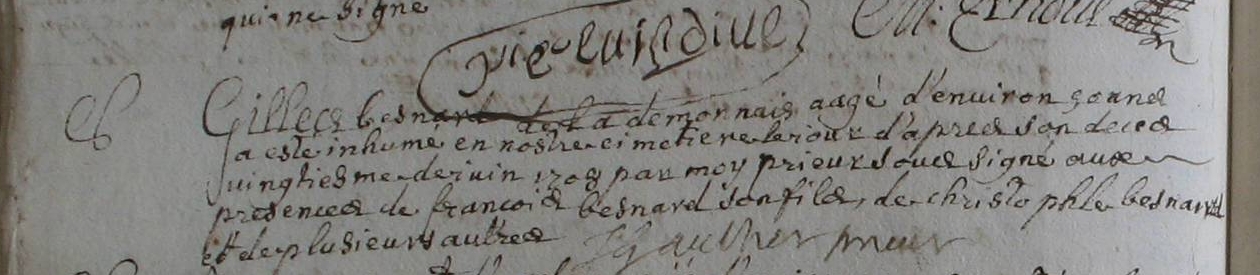 qui ne signe
M. Ernoul
S
Gilles besnard de la demonnais aagé d'environ 50 ans
a esté inhumé en nostre cimetiere le jour d'apres son deces
vingtiesme de juin 1708 par moy prieur sous signé aux
presences de francois besnard son fils, de christophle besnard
et de plusieurs autres Gaultier prieur